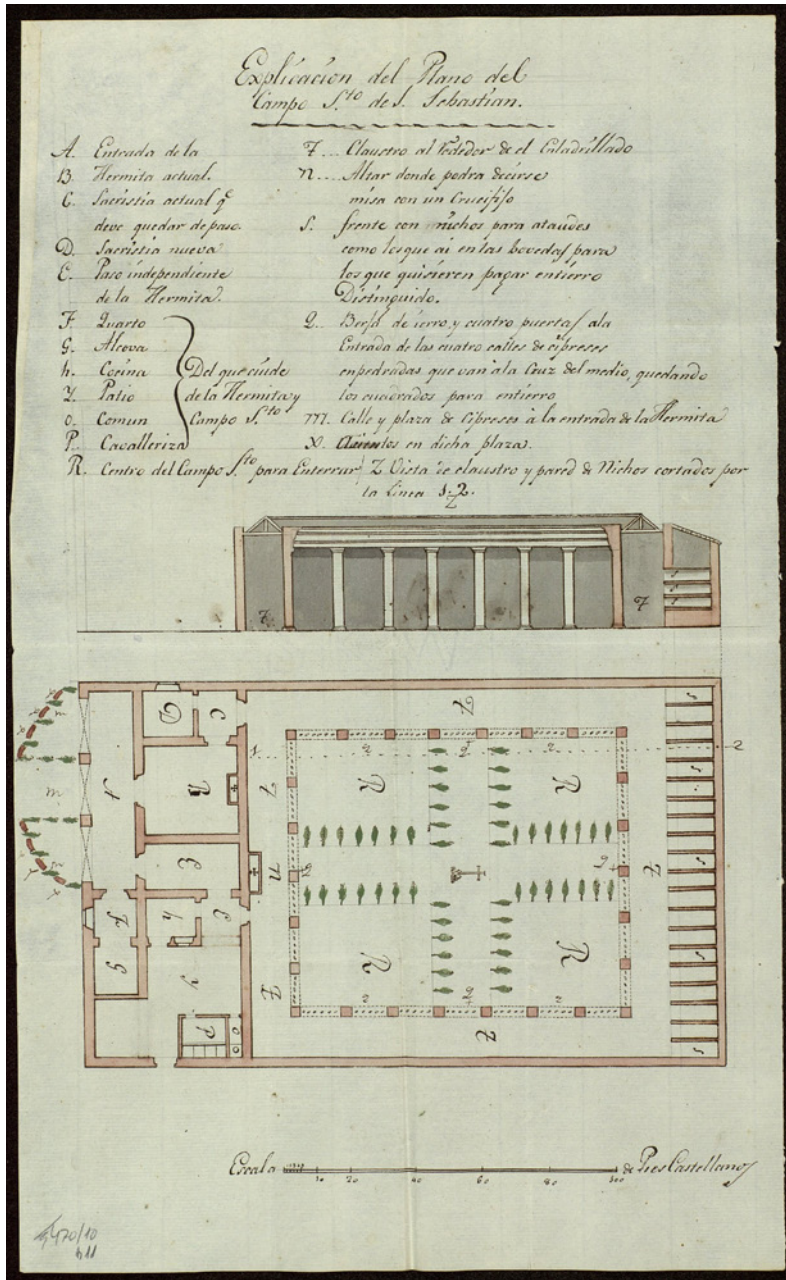 Explicacion del Plano del
Campo S.to de S. Sebastian.
A. Entrada de la
B. Hermita actual.
C. Sacristia actual q.e
deve quedar de paso.
D. Sacristia nueva
E. Paso independiente
de la Hermita.
F. Quarto
G. Alcova
h. Cocina
Y. Patio
o. Comun
P. Cavalleriza
Del que cuide
de la Hermita y
Campo S.to
R. Centro del Campo S.to para Enterrar
7... Claustro al rededor de el Enladrillado
n... Altar donde podra decirse
misa con un Crucifiso
S. frente con nichos para ataudes
como los que ai en las bovedas para
los que quisieren pagar entierro
Distinguido.
2. Berja de ierro, y cuatro puertas ala
Entrada de las cuatro calles de cipreses
enpedradas que van ala Cruz del medio, quedando
los cuadrados para entierro
m. Calle y plaza de Cipreses à la entrada de la Hermita
X. Asientos en dicha plaza.
Z Vista de claustro y pared de Nichos cortados por
la Linea 1-2.
7
7
S
D
C
A
B
m
E
E
F
h
G
Y
P
o
n
7
7
7
7
R
R
R
R
1
2
2
2
2
S
S
S
Escala
10
20
40
60
80
100
de Pies Castellanos
470/10
b11